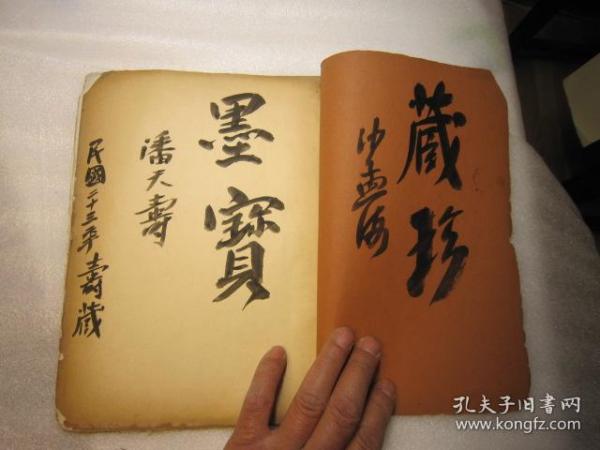 藏珍
沙孟海
墨寶
潘天壽
民國二十三年壽藏
孔夫子旧书网
www.kongfz.com